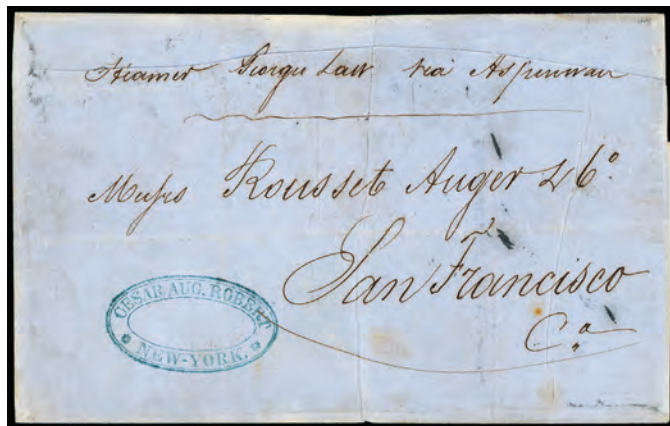 Steamer George Law via Aspinwall
Messrs Rousset Auger & Co.
San Francisco
Ca
CESAR AUG. ROBERT
NEW-YORK.